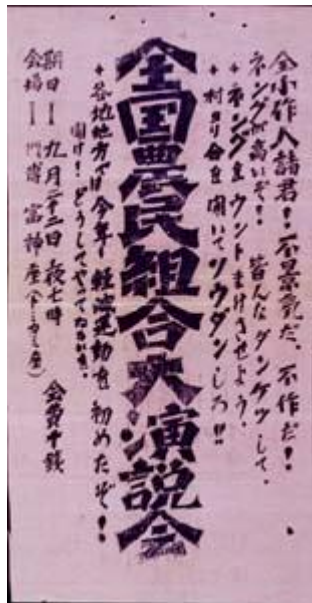 全小作人諸君！不景気だ、不作だ！
ネングが高いぞ！皆んなダンケツして、
＋ネングをウントまけさせよう、
＋村ヨリ合を開いてソウダンしろ!!
全国農民組合大演説会
＋各地地方では今年も軽減運動を初めたぞ！
聞け！どうしてやってるかを、
期日ー九月二十二日夜七時
会場ー富神座 会費十銭